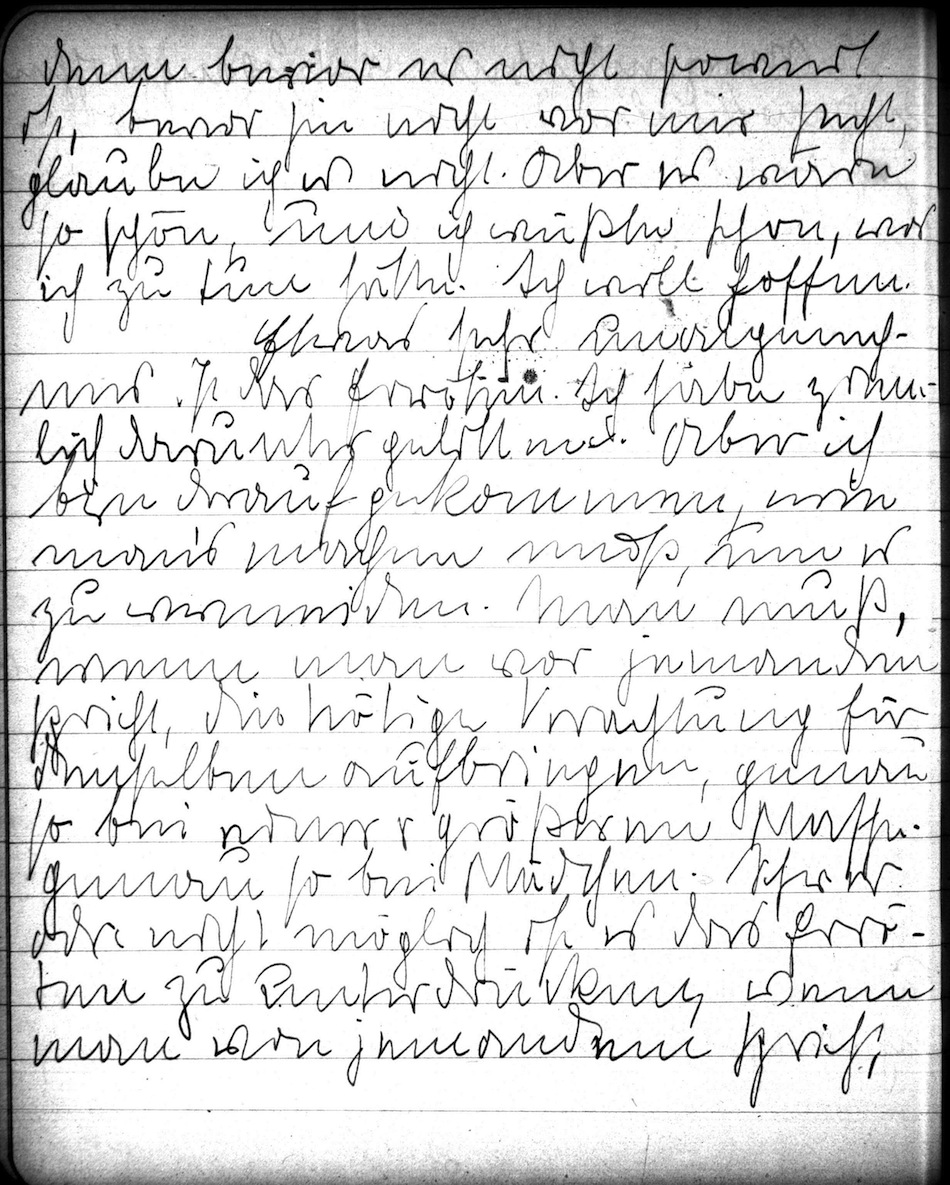 denn bevor es nicht soweit
ist, bevor sie nicht vor mir steht,
glaube ich es nicht. Aber es wäre
so schön, und ich wüßte schon, was
ich zu tun hätte. Ich will hoffen.
Etwas sehr unangeneh-
mes ist das Erröten. Ich habe ziem-
lich darunter gelitten. Aber ich
bin draufgekommen, wie
man's machen muß, um es
zu vermeiden. Man muß,
wenn man vor jemandem
spricht, die nötige Verachtung für
denselben aufbringen, genau
so bei einer größeren Masse.
genau so bei Mädchen. Schwer
oder nicht möglich ist es das Errö-
ten zu unterdrücken, wenn
man von jemandem spricht,